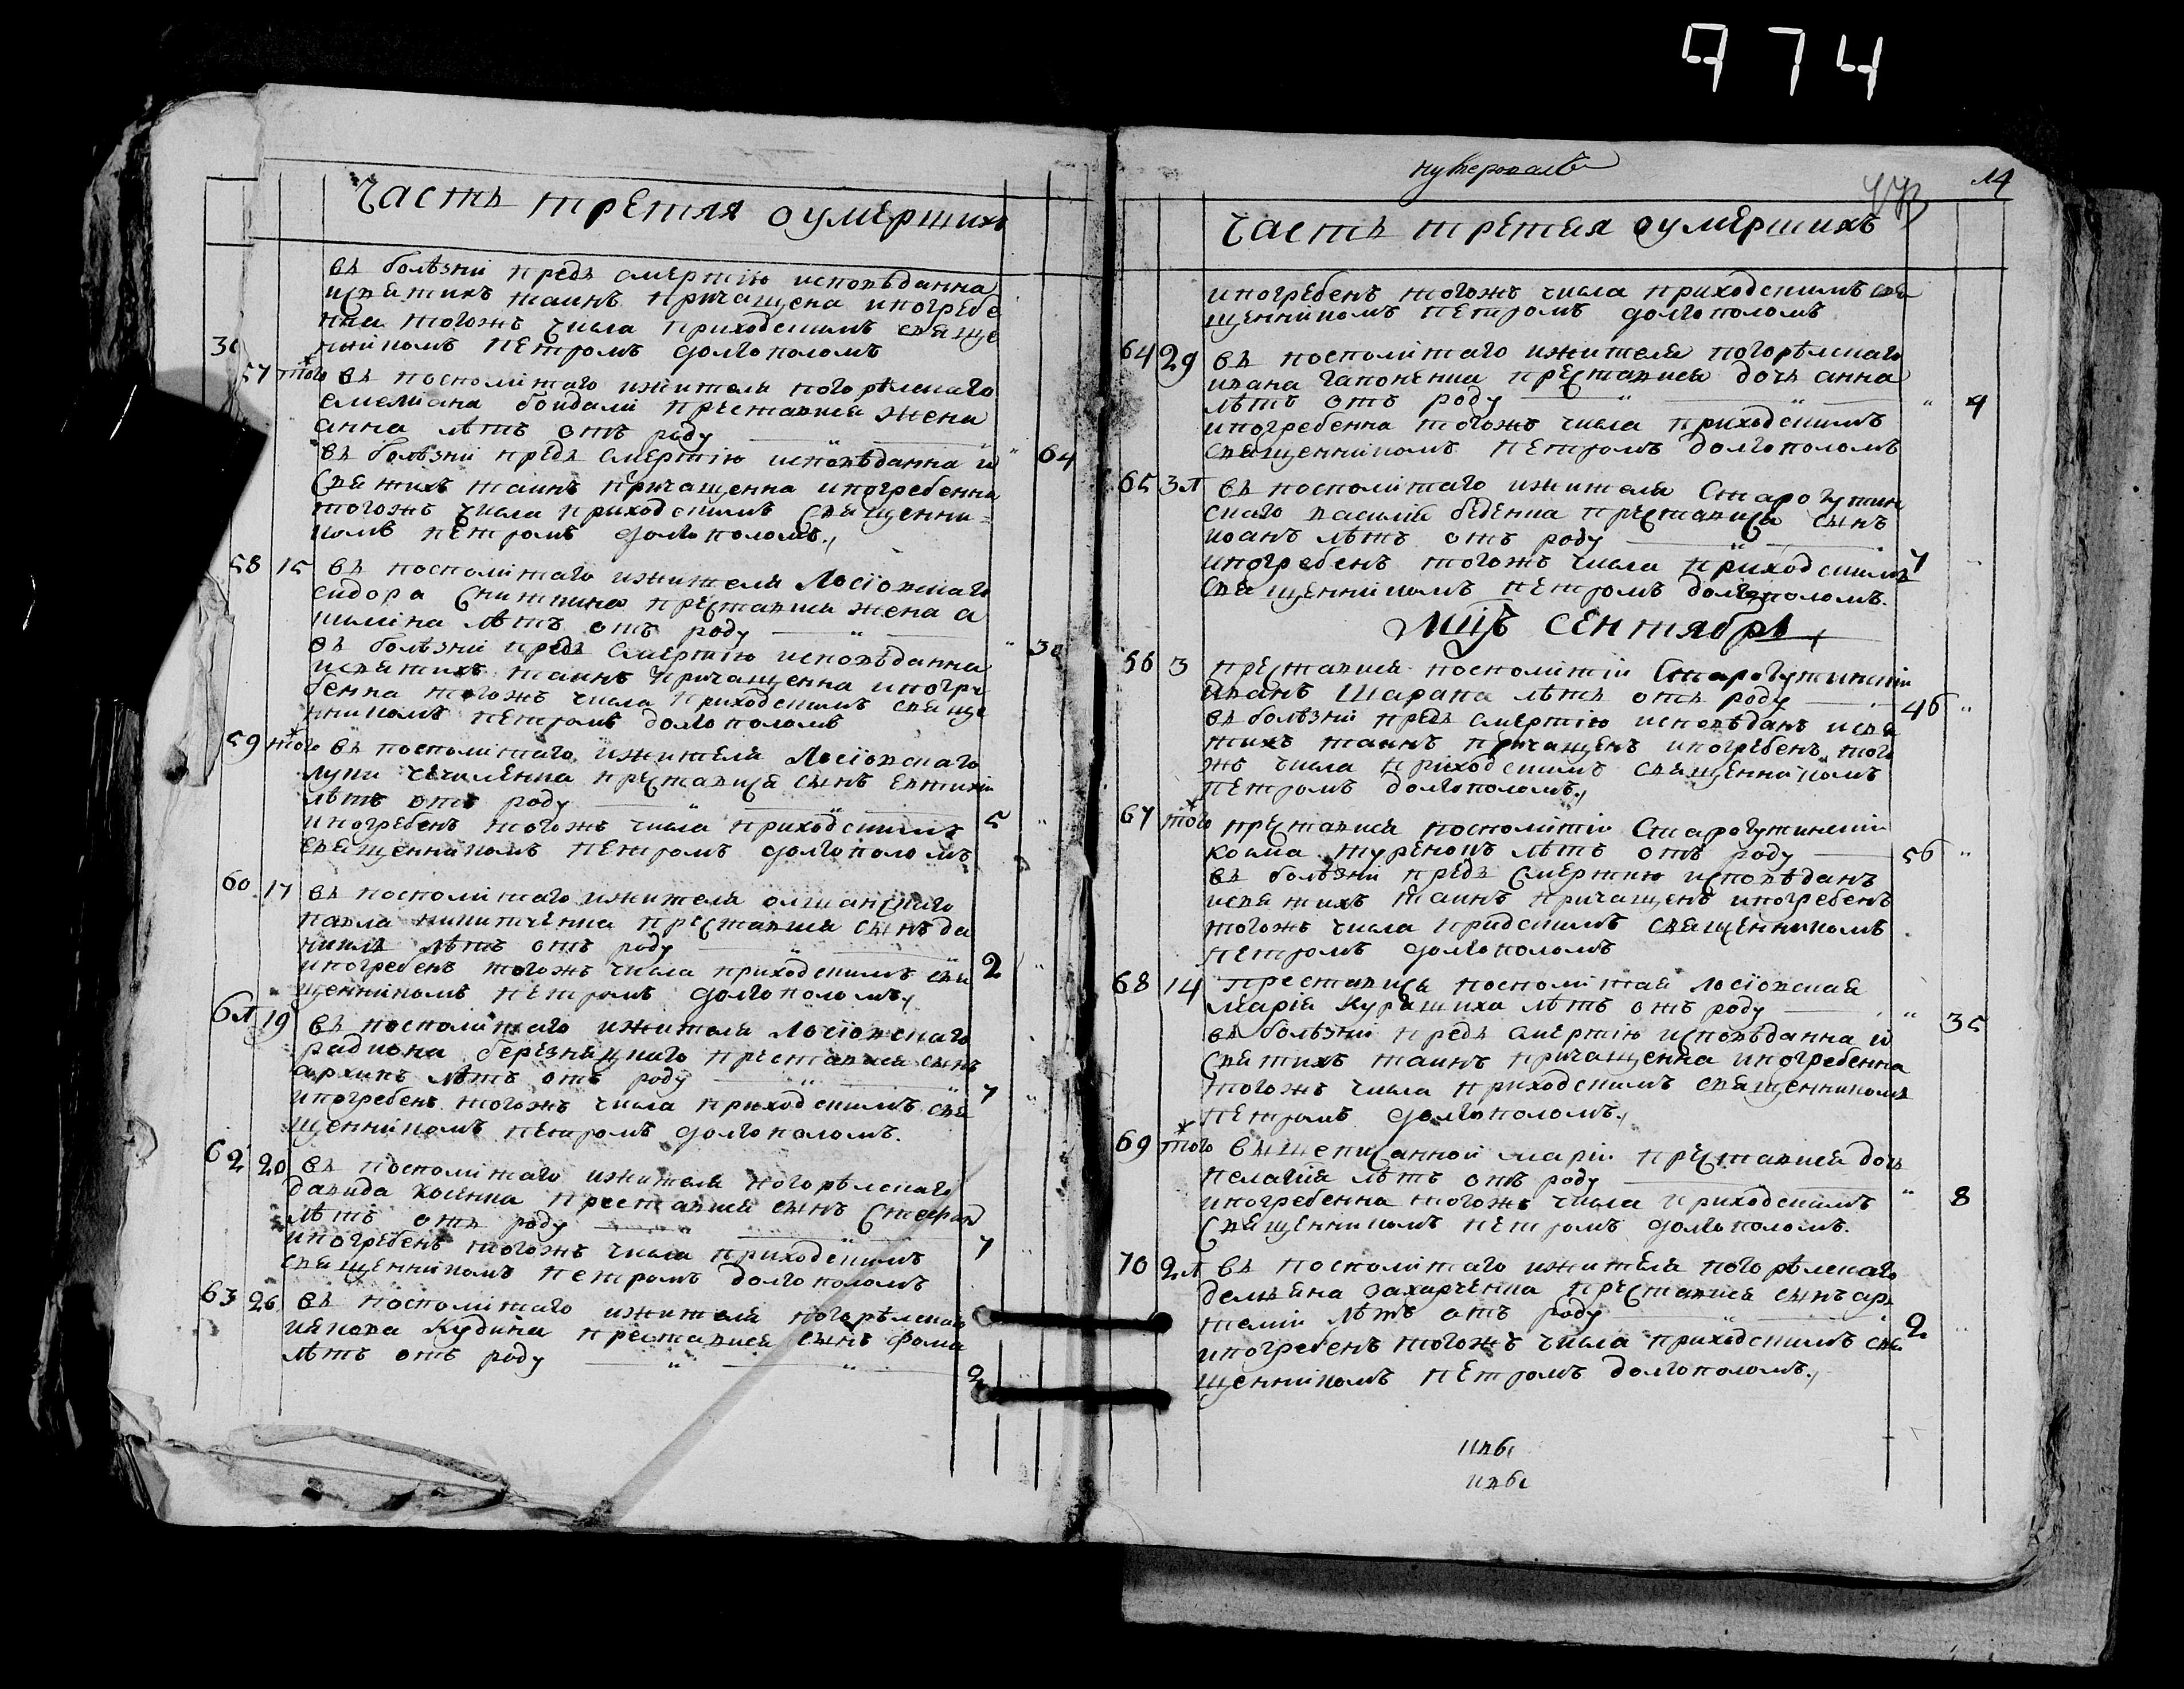 974
Часть третяя оумершихъ
въ болѣзни предъ смертію исповѣданна
исвятихъ таинъ причащена ипогребе
нна тогожъ числа приходскимъ свяще
нникомъ петромъ долгополомъ
57 того* въ посполитаго ижителя погорѣлского
емелиана боидали преставися жена
анна лѣтъ отъ роду 64
въ болѣзни предъ смертію исповѣданна и
святихъ таинъ причащенна ипогребенна
тогожъ числа приходскимъ священни=
комъ петромъ долгополомъ
58 15 въ посполитаго ижителя Лосіовскаго
сидора сниткина преставися жена а
килина лѣтъ отъ роду 30
въ болѣзни предъ смертію исповѣданна
исвятихъ таинъ причащенна ипогре
бенна тогожъ числа приходскимъ свяще
нникомъ петромъ долгополомъ
59 того* въ посполитаго ижителя Лосіовскаго
луки чечиленка преставися сынъ евтихіи
лѣтъ отъ роду 5
ипогребенъ тогожъ числа приходскимъ
священникомъ петромъ долгополомъ
60 17 въ посполитаго ижителя олшанскаго
павла никитченка преставися сынъ да
ниилъ лѣтъ отъ роду 2
ипогребенъ тогожъ числа приходскимъ свя
щенникомъ петромъ долгополомъ
61 19 въ посполитаго ижителя Лосіовскаго
радиона березняцкаго преставися сынъ
архипъ лѣтъ отъ роду 7
ипогребенъ тогожъ числа приходскимъ свя
щенникомъ петромъ долгополомъ.
62 20 въ посполитаго ижителя погорѣлскаго
давида косенка преставися сынъ стефан
лѣтъ отъ роду 7
ипогребенъ тогожъ числа приходскимъ
священникомъ петромъ долгополомъ
63 26 въ посполитаго ижителя погорѣлскаго
иякова кудина преставися сынъ фома
лѣтъ отъ роду 2
14
Часть третяя оумершихъ
ипогребенъ тогожъ числа приходскимъ свя
щенникомъ петромъ долгополомъ
64 29 въ посполитаго ижителя погорѣлскаго
ивана гапоненка преставися дочь анна
лѣтъ отъ роду 4
ипогребенна тогожъ числа приходскимъ
священникомъ петромъ долгополомъ
65 31 въ посполитаго ижителя Старогутин
скаго василія беденка преставися сынъ
иоанъ лѣтъ отъ роду 7
ипогребенъ тогожъ числа приходскимъ
священникомъ петромъ долгополомъ.
Мцъ сентябрь
66 3 преставися посполітіи Старогутинскіи
иванъ Шарапа лѣтъ отъ роду 46
въ болѣзни предъ смертію исповѣданъ исвя
тихъ таинъ причащенъ ипогребенъ того
жъ числа приходскимъ священникомъ
петромъ долгополомъ
67 того* преставися посполітіи Старогутинскіи
козма туренокъ лѣтъ отъ роду 56
въ болѣзни предъ смертию исповѣданъ
исвятихъ таинъ причащенъ ипогребенъ
тогожъ числа придскимъ священникомъ
петромъ долгополомъ
68 14 преставися посполитая лосіовская
марія Курашиха лѣтъ отъ роду 35
въ болѣзни предъ смертію исповѣданна и
святихъ таинъ причащенна ипогребенна
тогожъ числа приходскимъ священникомъ
петромъ долгополомъ
69 того* вишеписанной маріи преставися дочь
пелагія лѣтъ отъ роду 8
ипогребенна тогожъ числа приходскимъ
священникомъ петромъ долгополомъ.
70 21 въ посполитаго ижителя погорѣлскаго
демьяна захарченка преставися сынъ ар
темій лѣтъ отъ роду 2
ипогребенъ тогожъ числа приходскимъ свя
щенникомъ петромъ долгополомъ